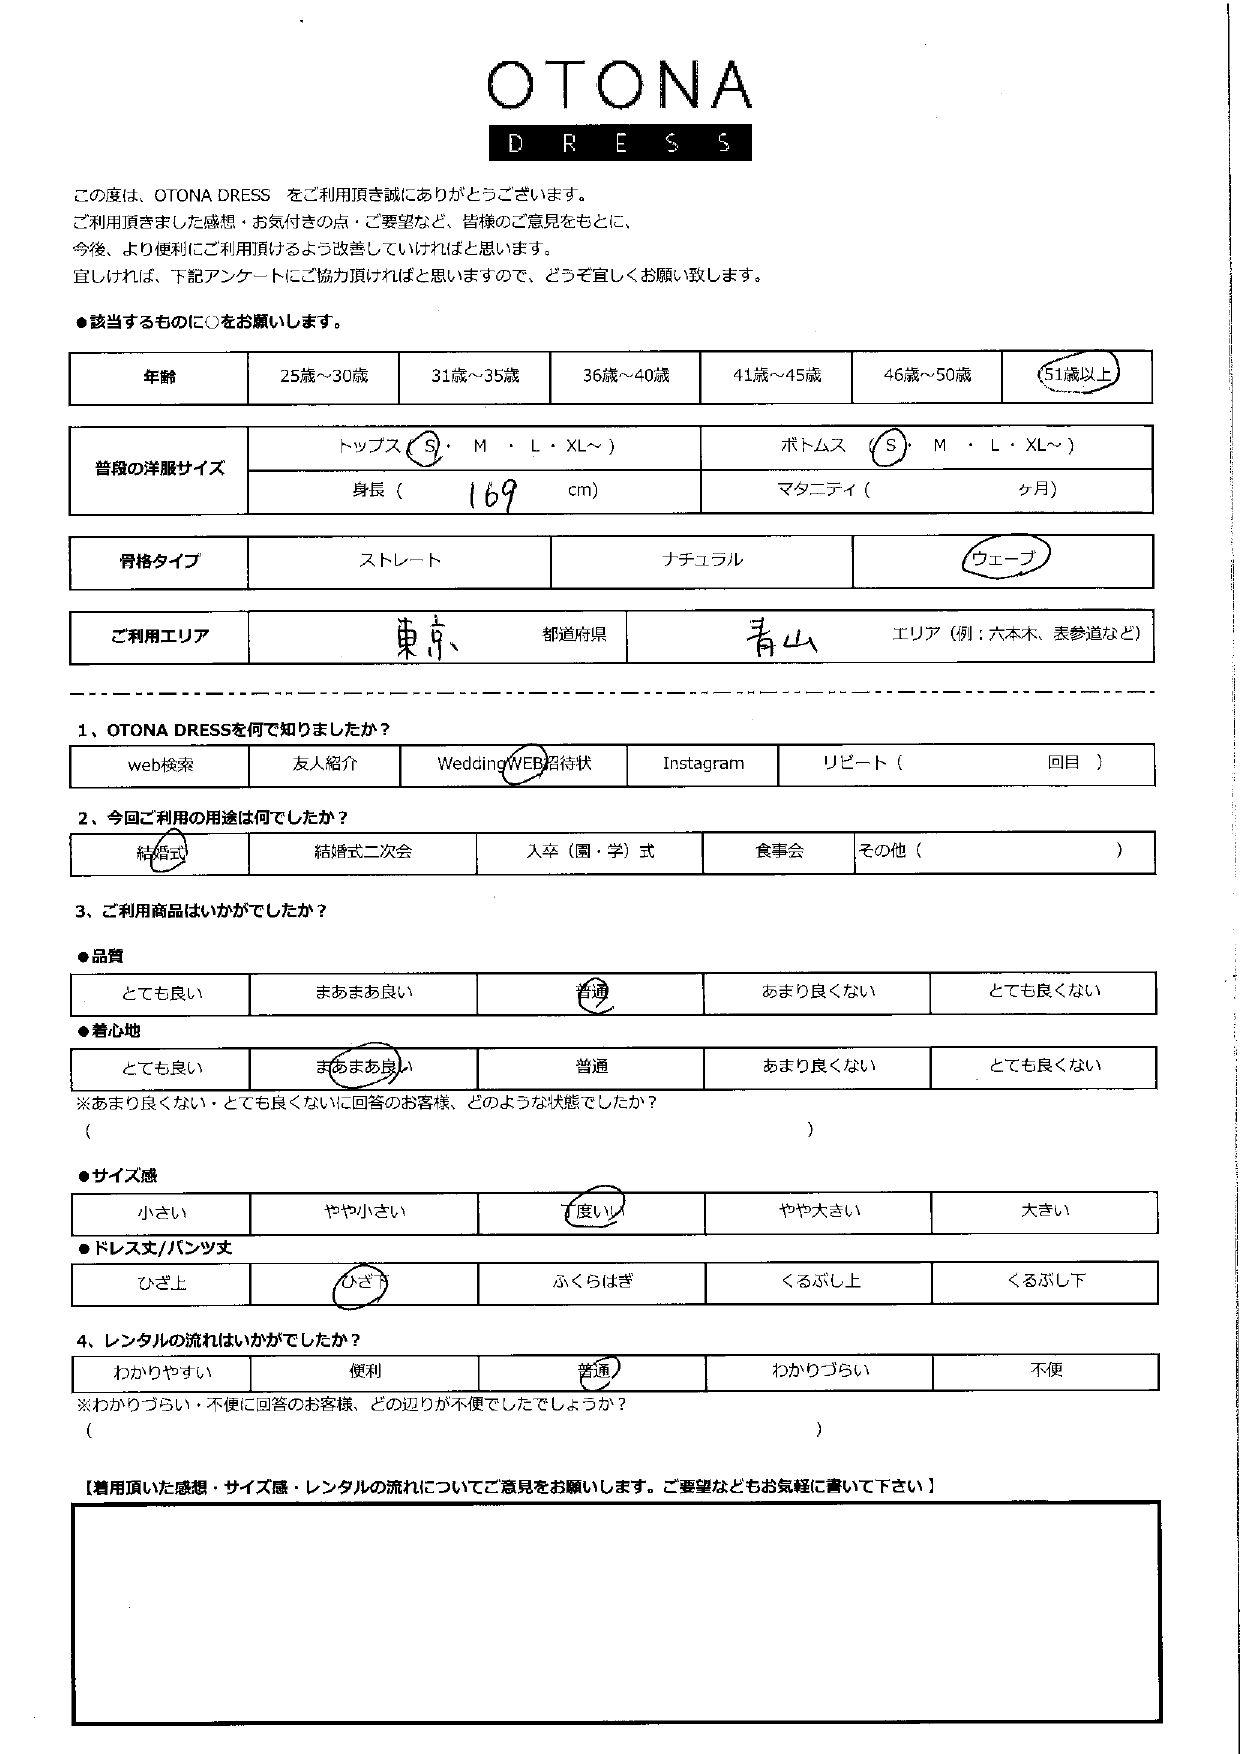 OTONA
DRESS
この度は、OTONA DRESS　をご利用頂き誠にありがとうございます。
ご利用頂きました感想・お気付きの点・ご要望など、皆様のご意見をもとに、
今後、より便利にご利用頂けるよう改善していければと思います。
宜しければ、下記アンケートにご協力頂ければと思いますので、どうぞ宜しくお願い致します。
●該当するものに○をお願いします。
年齢 25歳～30歳 31歳～35歳 36歳～40歳 41歳～45歳 46歳～50歳 51歳以上
普段の洋服サイズ トップス ( S ・ M ・ L ・ XL～ ) ボトムス ( S ・ M ・ L ・ XL～ )
身長 ( 169 cm) マタニティ ( ヶ月)
骨格タイプ ストレート ナチュラル ウェーブ
ご利用エリア 東京 都道府県 青山 エリア（例：六本木、表参道など）
1、OTONA DRESSを何で知りましたか？
web検索 友人紹介 WeddingWEB招待状 Instagram リピート ( 回目 )
2、今回ご利用の用途は何でしたか？
結婚式 結婚式二次会 入卒（園・学）式 食事会 その他 ( )
3、ご利用商品はいかがでしたか？
●品質
とても良い まあまあ良い 普通 あまり良くない とても良くない
●着心地
とても良い まあまあ良い 普通 あまり良くない とても良くない
※あまり良くない・とても良くないに回答のお客様、どのような状態でしたか？
( )
●サイズ感
小さい やや小さい 丁度いい やや大きい 大きい
●ドレス丈/パンツ丈
ひざ上 ひざ下 ふくらはぎ くるぶし上 くるぶし下
4、レンタルの流れはいかがでしたか？
わかりやすい 便利 普通 わかりづらい 不便
※わかりづらい・不便に回答のお客様、どの辺りが不便でしたでしょうか？
( )
【着用頂いた感想・サイズ感・レンタルの流れについてご意見をお願いします。ご要望などもお気軽に書いて下さい】